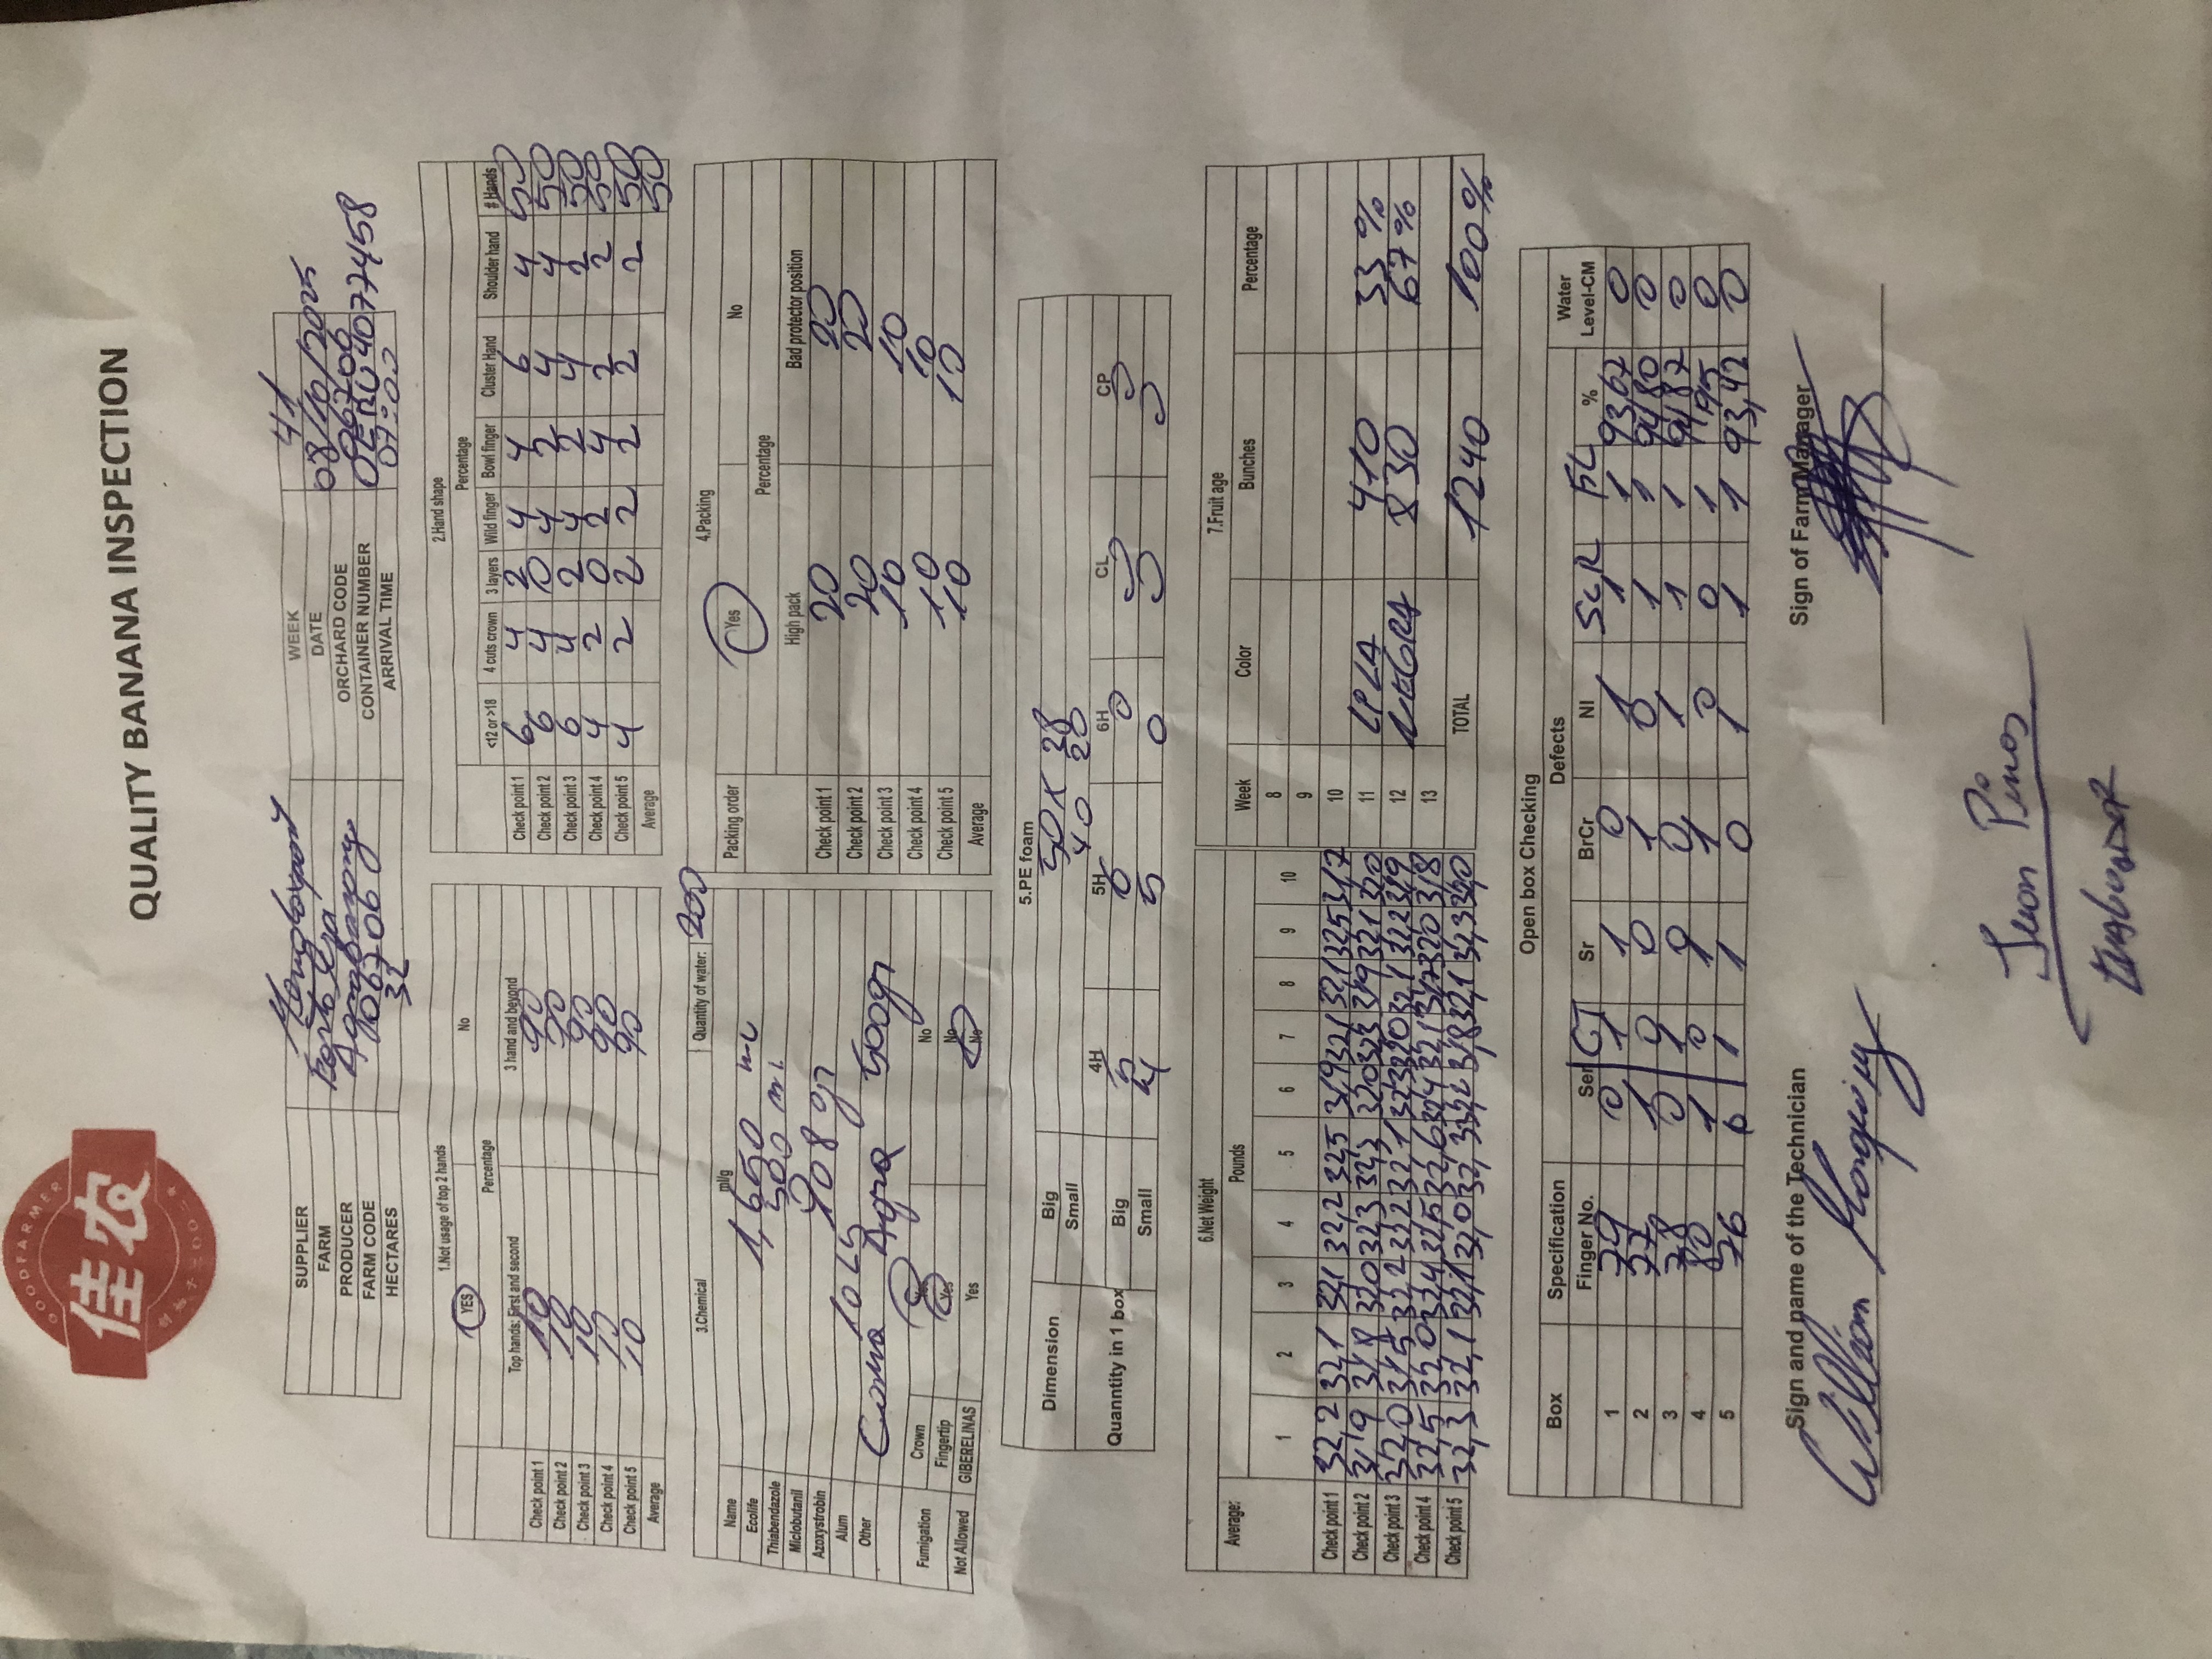 GOODFARMER
佳农
创始于二〇〇二年
QUALITY BANANA INSPECTION
SUPPLIER Mendoexport WEEK 41
FARM DATE 08/10/2025
PRODUCER ORCHARD CODE 06706
FARM CODE 06706 CONTAINER NUMBER OERU4077458
HECTARES 32 ARRIVAL TIME 07:00
1.Not usage of top 2 hands
YES No
Percentage
Top hands: First and second 3 hand and beyond
Check point 1 10 90
Check point 2 10 90
Check point 3 10 90
Check point 4 10 90
Check point 5 10 90
Average
2.Hand shape
Percentage
<12 or >18 4 cuts crown 3 layers Wild finger Bowl finger Cluster Hand Shoulder hand # Hands
Check point 1 6 4 2 4 4 6 4 50
Check point 2 6 4 0 4 2 4 4 50
Check point 3 6 4 2 4 2 4 2 50
Check point 4 4 2 0 2 4 2 2 50
Check point 5 4 2 2 2 2 2 2 50
Average 50
3.Chemical Quantity of water: 200
Name ml/g
Ecolife 1,650 ml
Thiabendazole 500 ml
Miclobutanil
Azoxystrobin 208 gr
Alum 10 Ls
Other Coma Agra 500gr
Fumigation Crown Yes No
Fingertip Yes No
Not Allowed GIBERELINAS Yes No
4.Packing
Packing order Yes No
Percentage
High pack Bad protector position
Check point 1 20 20
Check point 2 20 20
Check point 3 10 10
Check point 4 10 10
Check point 5 10 10
Average
5.PE foam
Dimension Big 50 x 38
Small 40 20
Quanntity in 1 box 4H 5H 6H CL CP
Big 5 6 0 0 0
Small 4 5 0 0 0
6.Net Weight
Average: Pounds
1 2 3 4 5 6 7 8 9 10
Check point 1 32,2 32,1 32,1 32,2 32,5 31,9 32,1 32,1 32,5 31,7
Check point 2 31,9 31,8 32,0 32,3 32,3 32,0 32,3 31,9 32,1 32,0
Check point 3 32,0 31,5 32,2 32,2 32,1 32,3 32,0 32,1 32,2 31,9
Check point 4 32,5 32,0 32,4 32,5 32,6 32,4 32,1 31,7 32,0 31,8
Check point 5 32,3 32,1 32,1 32,0 32,3 32,2 31,8 32,1 32,3 32,0
7.Fruit age
Week Color Bunches Percentage
8
9
10
11 LILA 410 33%
12 NEGRA 830 67%
13
TOTAL 1240 100%
Open box Checking
Box Specification Defects Water
Finger No. Ser CT Sr BrCr NI SCR FL % Level-CM
1 79 0 1 1 0 1 1 1 93,67 0
2 77 1 0 0 1 0 1 1 94,80 0
3 78 0 1 0 0 1 1 1 94,87 0
4 80 1 0 1 1 0 0 1 95 0
5 76 0 1 1 0 1 1 1 93,42 0
Sign and name of the Technician Sign of Farm Manager
William
Juan Pinos
EVALUADOR